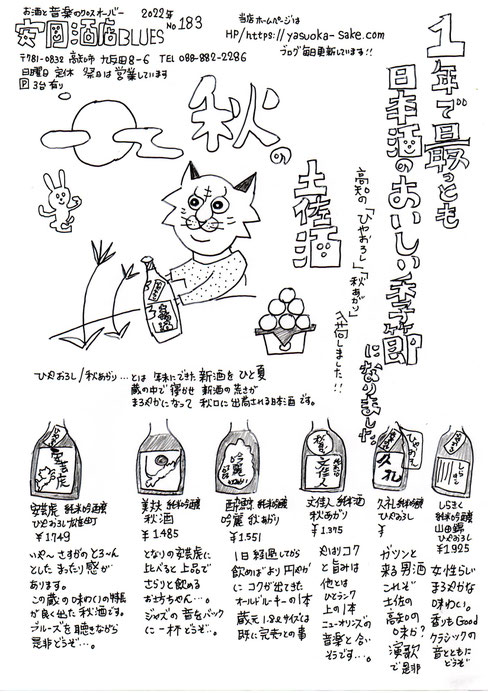 お酒と音楽のクロスオーバー
2022年
No 183
安岡酒店BLUES
〒781-0832 高知市 九反田8-6 TEL 088-882-2286
日曜日 定休 祭日は営業しています
P 3台有り
当店ホームページは
HP/https://yasuoka-sake.com
ブログ毎日更新しています!!
1年で最っとも
日本酒のおいしい季節
になりました。
秋の
土佐酒
高知の「ひやおろし」「秋あがり」
入荷しました!!
ひやおろし/秋あがり…とは 年末にできた新酒をひと夏
蔵の中で寝かせ 新酒の荒さが
まろやかになって 秋口に出荷される日本酒です。
安芸虎 純米吟醸
ひやおろし
¥1749
いや〜 さすがのと3〜ん
とした まったり感が
あります。
この蔵の味わいの特長
が良く出た 秋酒です。
ブルーズを聴きながら
是非どうぞ…。
美丈 純米吟醸
秋酒
¥1.485
となりの安芸虎に
比べると 上品で
さらりと飲める
お坊ちゃん…。
ジャズの音をバック
に一杯どうぞ…。
酔鯨 純米吟醸
吟麗 秋あがり
¥1.551
1日経過してから
飲めばより円やか
にコクが出てきた
オールドルーキーの1本
蔵元1.8Lサイズは
既に完売との事
文佳人 純米酒
秋あがり
¥1.375
やはりコク
と旨みは
他とは
ひとランク
上の1本
ニューオリンズの
音楽と合い
そうです…。
久礼 純米吟醸
ひやおろし
¥
ガツンと
来る男酒
これぞ
土佐の
高知の
味か?
演歌
で是非
しらぎく
純米吟醸
山田錦
ひやおろし
¥1.925
女性らしい
まろやかな
味わい。
香りもGood
クラシックの
音とともに
どうぞ